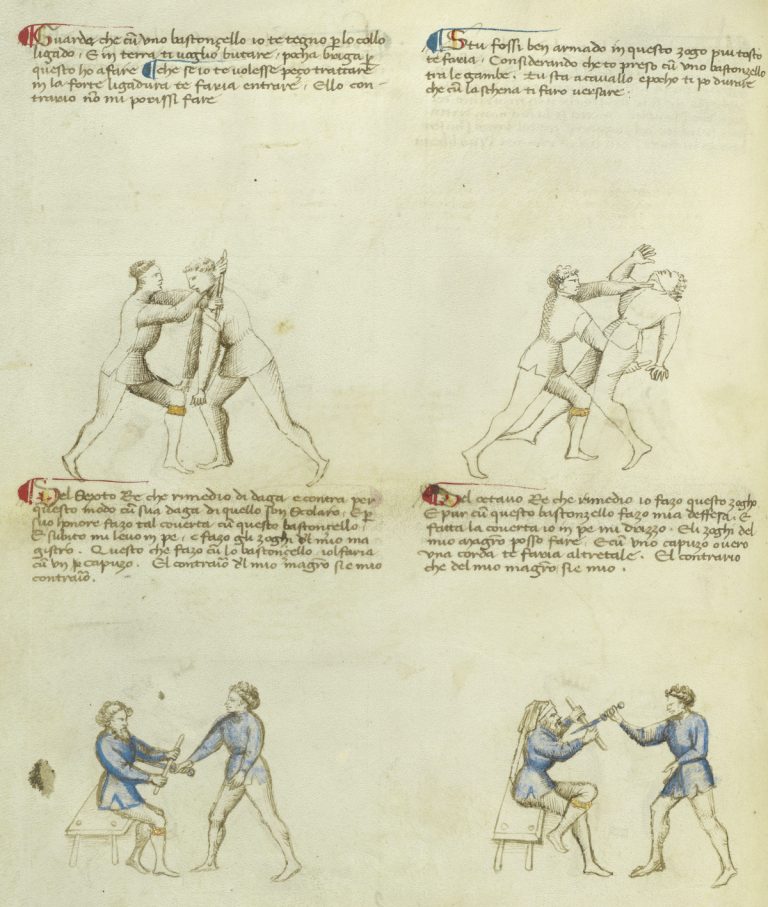 Guarda che cũ uno bastoncello io te tegno ꝑ lo collo
ligado. E in terra ti voglio butare, pocha briga ꝑ
questo ho a fare. Che se io te volesse peço trattare
in la forte ligadura te faria entrare. E llo con-
trario nõ mi porissi fare
Stu fossi ben armado in questo zogo piu tosto
te faria. Considerando che to preso cũ uno bastonzello
tra le gambe. Tu sta a cavallo e pocho ti po durare
che cũ la schena ti faro versare.
Del Sexto Re che rimedio di daga e contra per
questo modo cũ sua daga di quello son Scolaro. E ꝑ
suo honore fazo tal coverta cũ questo bastoncello.
E subito mi levo in pe, e fazo gli zoghi dl mio ma
gistro. Questo che fazo cũ lo bastoncello, io l faria
cũ un capuzo. El contrario dl mio magro si e mio
contrario.
Del octavo Re che rimedio io fazo questo zogho
E pur cũ questo bastonzello fazo mia deffesa. E
fatta la coverta io in pe mi drizzo. E li zoghi del
mio magro posso fare. E cũ uno capuzo overo
una corda te faria altretale. El contrario
che del mio magro, si e mio.